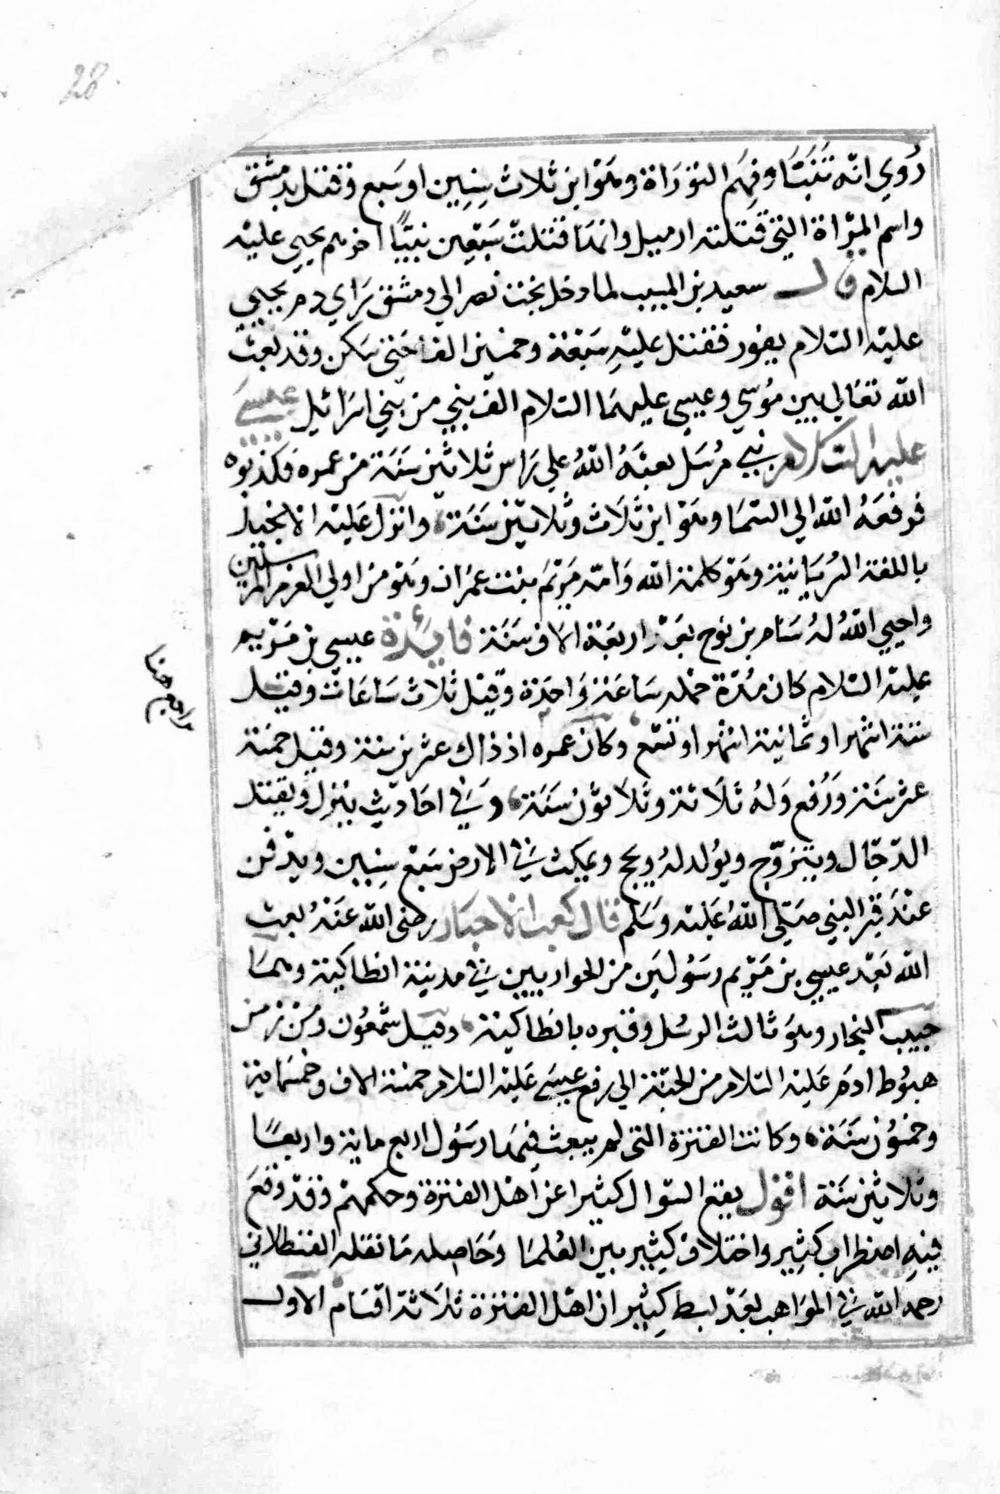 28
رُوي انّه تَنَبّأ وفهم التوراة وهو ابن ثلاث سنين اوسبع وقتل بدمشق
واسم المرأة التي قتلته ارميل وانها قتلت سَبْعين نبيًّا اخرهم يحيي عليه
السلام قال سعيد بن المسيب لما دخل بخت نصر الي دمشق راي دم يحيي
عليه السلام يفور فقتل عليه سبعة وخمسين الفا حتى سكن وقد بعث
الله تعالي بين مُوسي وعيسي عليهما السلام الف نبي من بني اسرائيل عيسى
عليه السلام نبي مُرسَل بعثهُ اللهُ علي راس ثلاثين سَنَة من عمره فكذبوه
فرفعَهُ الله الي السّما وهو ابن ثلاث وثلاثين سَنَة وانزل عليه الانجيل
باللغة السُريانية وهو كلمة الله وامه مريم بنت عمران وهو من اولي العزم المرسلين
واحيي اللهُ لهُ سام بن نوح بعد اربعة الاف سَنَة فائدة عيسي بن مَرْيم
عليه السلام كان مُدّة حمله ساعة واحدة وقيل ثلاث ساعات وقيل
ستة اشهر او ثمانية اشهر او تسع وكان عمره اذ ذاك عشرين سنة وقيل خمسة
عشر سنة وَرُفع وَلهُ ثلاثة وثلاثون سَنَة وفي احاديث ينزل ويقتل
الدجّال ويتزوّج ويُولد لهُ ويحج ويمكث في الارض سبع سنين ويدفن
عند قبر النبي صَلي اللهُ عليه وسَلم قال كعب الاحبار رضى الله عَنهُ بعث
الله بَعْد عيسي بن مَرْيم رسُولين من الحواريين في مدينة انطاكية وهما
حبيب النجار وهو ثالث الرسُل وقبره بانطاكية وقيل شمعُون ومن زمن
هبُوط ادم عليه السّلام من الجنّة الي رفع عيسَى عليه السّلام خمسة الاف وخمسماية
وخمسُون سَنَة وكانت الفترة التى لم يبعث فيها رسُول اربع ماية واربعًا
وثلاثين سَنة اقول يقع السّوال كثيرا عن اهل الفترة وحكمهم وقد وقعَ
فيه اضطراب كثير واختلاف كثير بين العُلما وَحَاصله ما نقله القسطلاني
رحمه الله في المواهب بعْد بسط كثير ان اهل الفترة ثلاثة اقسام الاول
راجع هنا